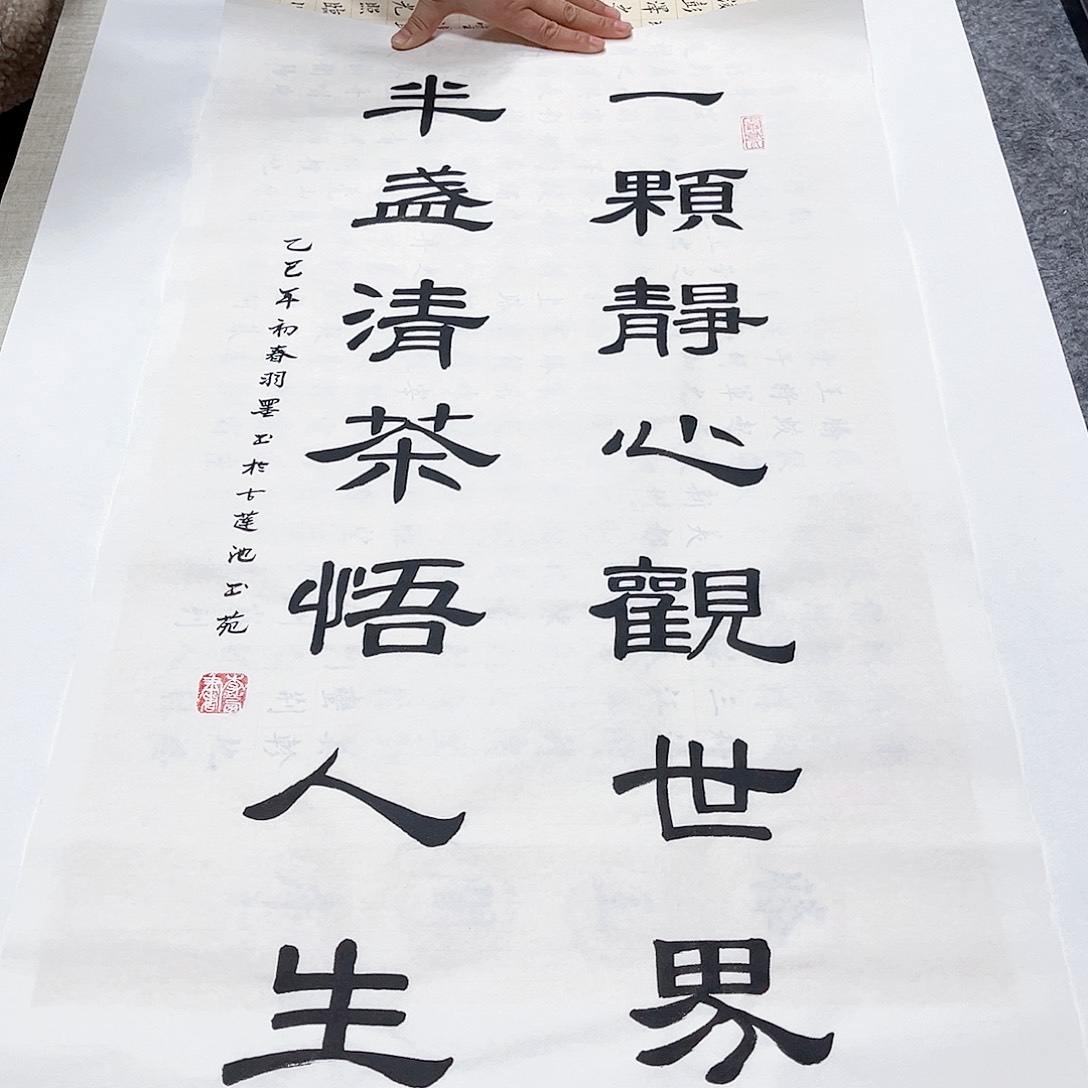 一顆靜心觀世界
半盏清茶悟人生
乙巳年初春羽墨书於古蓮池书苑